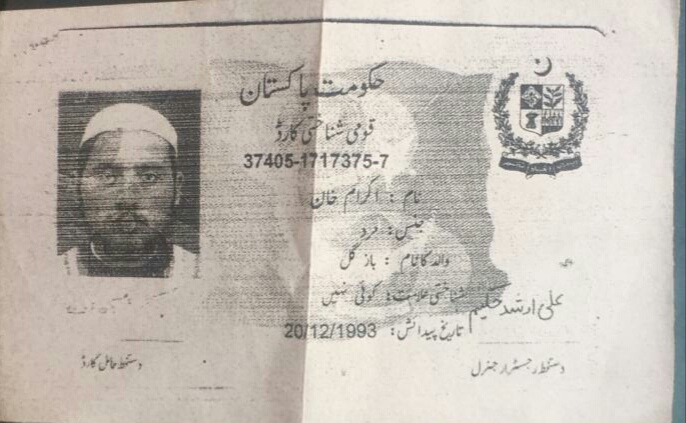 حکومت پاکستان
قومی شناختی کارڈ
37405-1717375-7
نام : اکرام خان
جنس: مرد
والد کا نام : باز گل
شناختی علامت: کوئی نہیں
تاریخ پیدائش: 20/12/1993
علی ارشد حکیم
دستخط حامل کارڈ
دستخط رجسٹرار جنرل